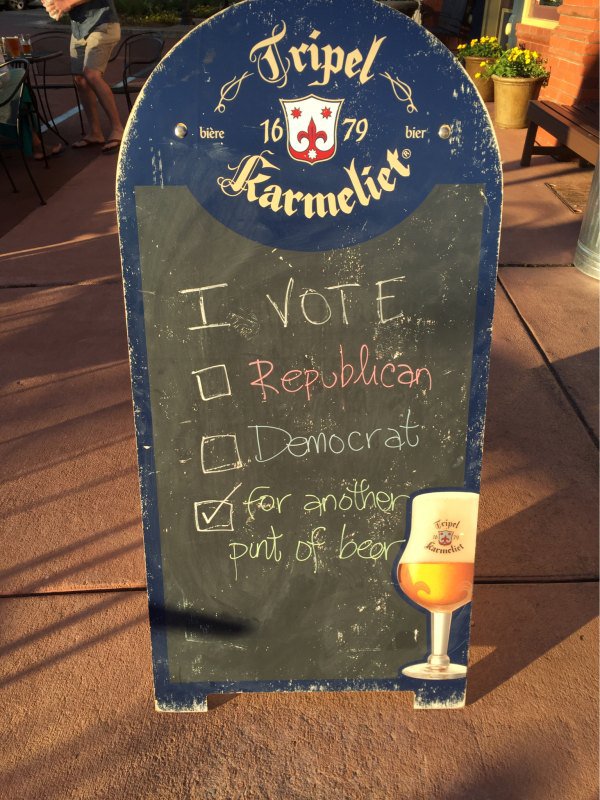 Tripel
bière 16 79 bier
Karmeliet®
I VOTE
Republican
Democrat
for another
pint of beer
Tripel
16 79
Karmeliet